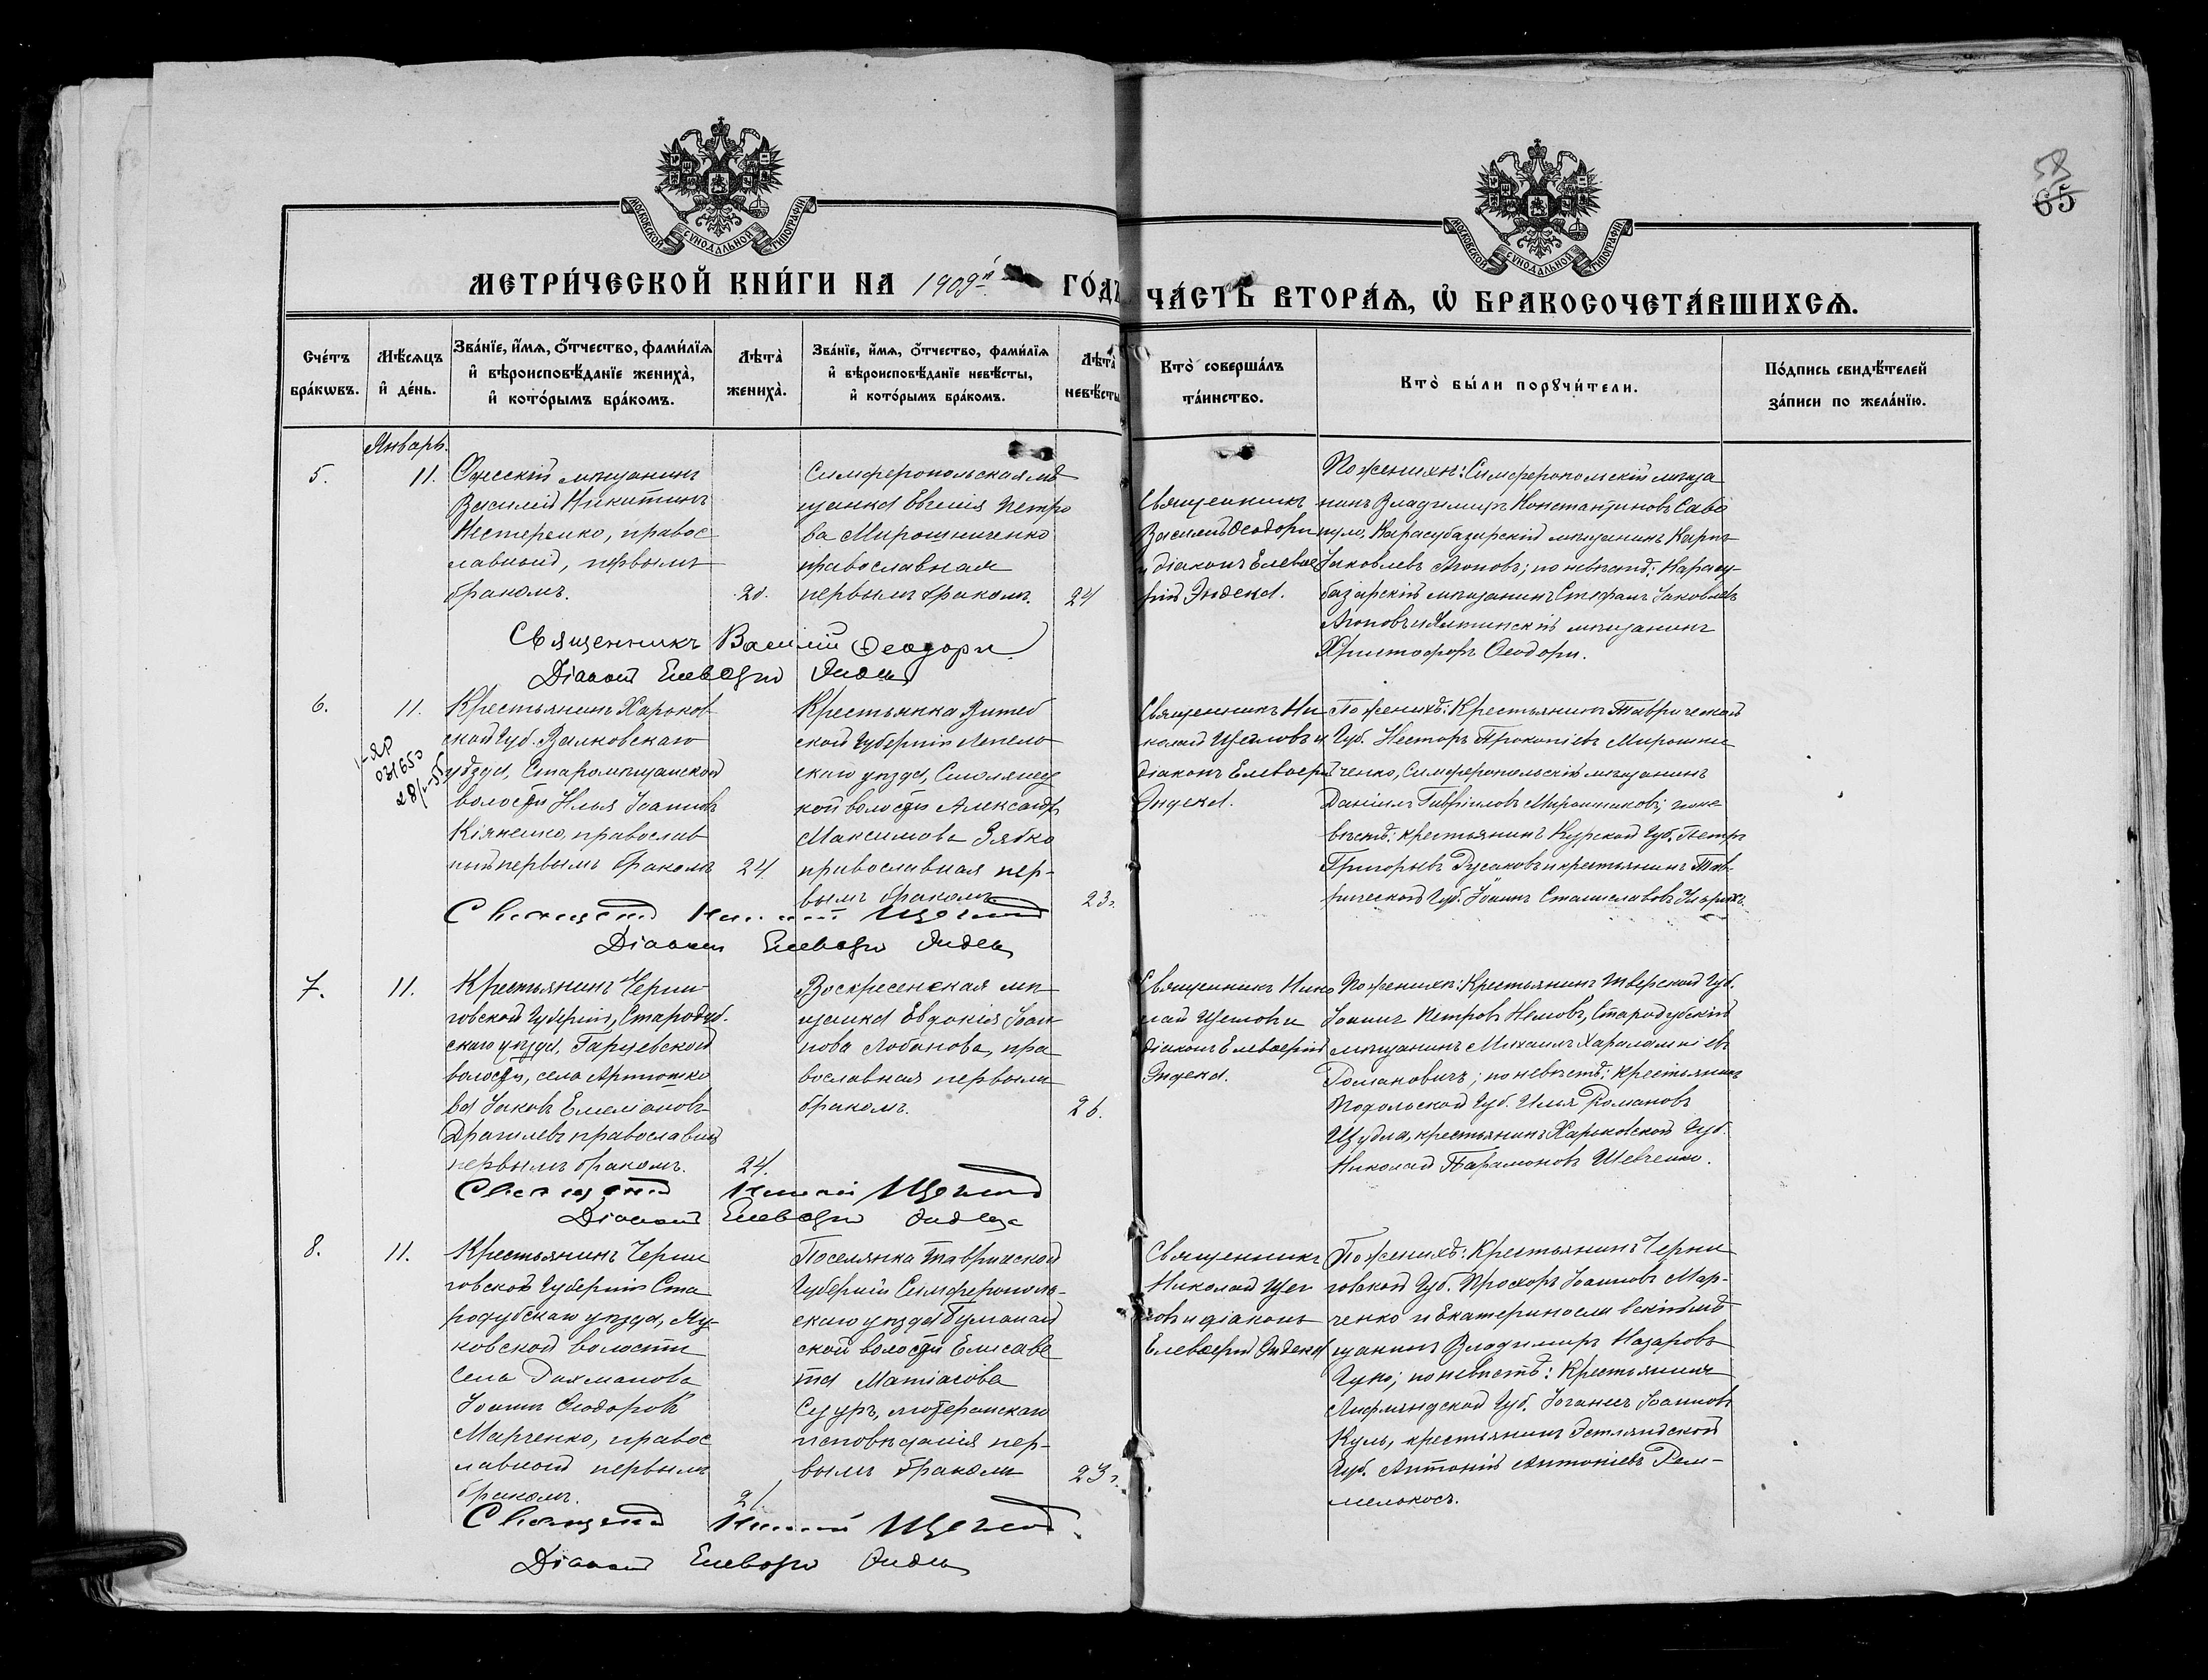 58
65
МОСКОВСКОЙ СѴНОДАЛЬНОЙ ТИПОГРАФІИ
МОСКОВСКОЙ СѴНОДАЛЬНОЙ ТИПОГРАФІИ
МЕТРИ́ЧЕСКОЙ КНИ́ГИ НА 1909й ГО́ДЪ
ЧА́СТЬ ВТОРА́Ѧ, Ѡ БРАКОСОЧЕТА́ВШИХСѦ.
Сче́тъ
бра́кѡвъ.
Мѣ́сѧцъ
и҆ де́нь.
Зва́нїе, и҆́мѧ, ѻ҆́тчество, фами́лїѧ
и҆ вѣроисповѣ́данїе жениха̀,
и҆ кото́рымъ бра́комъ.
Лѣта̀
жениха̀.
Зва́нїе, и҆́мѧ, ѻ҆́тчество, фами́лїѧ
и҆ вѣроисповѣ́данїе невѣ́сты,
и҆ кото́рымъ бра́комъ.
Лѣта̀
невѣ́сты
Кто̀ соверша́лъ
та́инство.
Кто̀ бы́ли порꙋчи́тели.
По́дпись свидѣ́телей
за́писи по жела́нїю.
Январь.
5.
11.
Одесскій мѣщанинъ
Василій Никитинъ
Нестеренко, правос
лавный, первымъ
бракомъ.
Симферопольская мѣ
щанка Евгенія Петро
ва Мирошниченко
православная
первымъ бракомъ.
24
Священникъ
Василій Ѳеодори
и діаконъ Елевѳе
рій Эндека.
По женихѣ: Симферопольскій мѣща
нинъ Владимиръ Константиновъ Саво
пуло, Карасубазарскій мѣщанинъ Карпъ
Яковлевъ Агоповъ; по невѣстѣ: Карасу-
базарскій мѣщанинъ Стефанъ Яковлевъ
Агоповъ и Ялтинскій мѣщанинъ
Христофоръ Ѳеодори.
Священникъ Василій Ѳеодори
Діаконъ Елевѳерій Эндека
6.
11.
031650
Крестьянинъ Харьков
ской губ. Валковскаго
уѣзда, Старомѣщанской
волости Илья Іоанновъ
Кіяненко, православ
ный первымъ бракомъ
24.
Крестьянка Витеб
ской губерніи Лепель
скаго уѣзда, Смолянец
кой волости Александра
Максимова Зябко
православная пер-
вымъ бракомъ.
23.
Священникъ Ни
колай Щегловъ и
діаконъ Елевѳерій
Эндека.
По женихѣ: Крестьянинъ Таврической
губ. Несторъ Прокопіевъ Мирошни
ченко, Симферопольскій мѣщанинъ
Даніилъ Гавріиловъ Мирошниковъ; по не
вѣстѣ: крестьянинъ Курской губ. Петръ
Григорьевъ Русаковъ и крестьянинъ Тав-
рической губ. Іоаннъ Станиславовъ
Священникъ Николай Щегловъ
Діаконъ Елевѳерій Эндека
7.
11.
Крестьянинъ Черни
говской губерніи, Стародуб-
скаго уѣзда, Гарцевской
волости, села Артюшко
ва Іаковъ Емеліановъ
Драгилевъ православный
первымъ бракомъ.
24.
Воскресенская мѣ
щанка Евдокія Іоан
нова Лобанова, пра
вославная первымъ
бракомъ.
26.
Священникъ Нико
лай Щегловъ и
діаконъ Елевѳерій
Эндека.
По женихѣ: Крестьянинъ Тверской губ.
Іоаннъ Петровъ Немовъ, Стародубскій
мѣщанинъ Михаилъ Харалампіевъ
Романовичъ; по невѣстѣ: крестьянинъ
Подольской губ. Илья Романовъ
Щудла, крестьянинъ Харьковской губ.
Николай Парамоновъ Шевченко.
Священникъ Николай Щегловъ
Діаконъ Елевѳерій Эндека
8.
11.
Крестьянинъ Черни
говской губерніи Ста
родубскаго уѣзда,
ковской волости
села Дохманова
Іоаннъ Ѳеодоровъ
Марченко, правос
лавный первымъ
бракомъ.
21.
Поселянка Таврической
губерніи Симферополь-
скаго уѣзда
ской волости Елисаве
та Матіасова
лютеранскаго
исповѣданія пер-
вымъ бракомъ
23.
Священникъ
Николай Щег
ловъ и діаконъ
Елевѳерій Эндека
По женихѣ: Крестьянинъ Черни
говской губ. Прохоръ Іоанновъ Мар-
ченко и Екатеринославскій мѣ
щанинъ Владимиръ Назаровъ
по невѣстѣ: Крестьянинъ
Лифляндской губ. Іоганесъ Іоанновъ
Куль, крестьянинъ Эстляндской
губ. Антоній Антоніевъ Рем-
мелькосъ.
Священникъ Николай Щегловъ
Діаконъ Елевѳерій Эндека